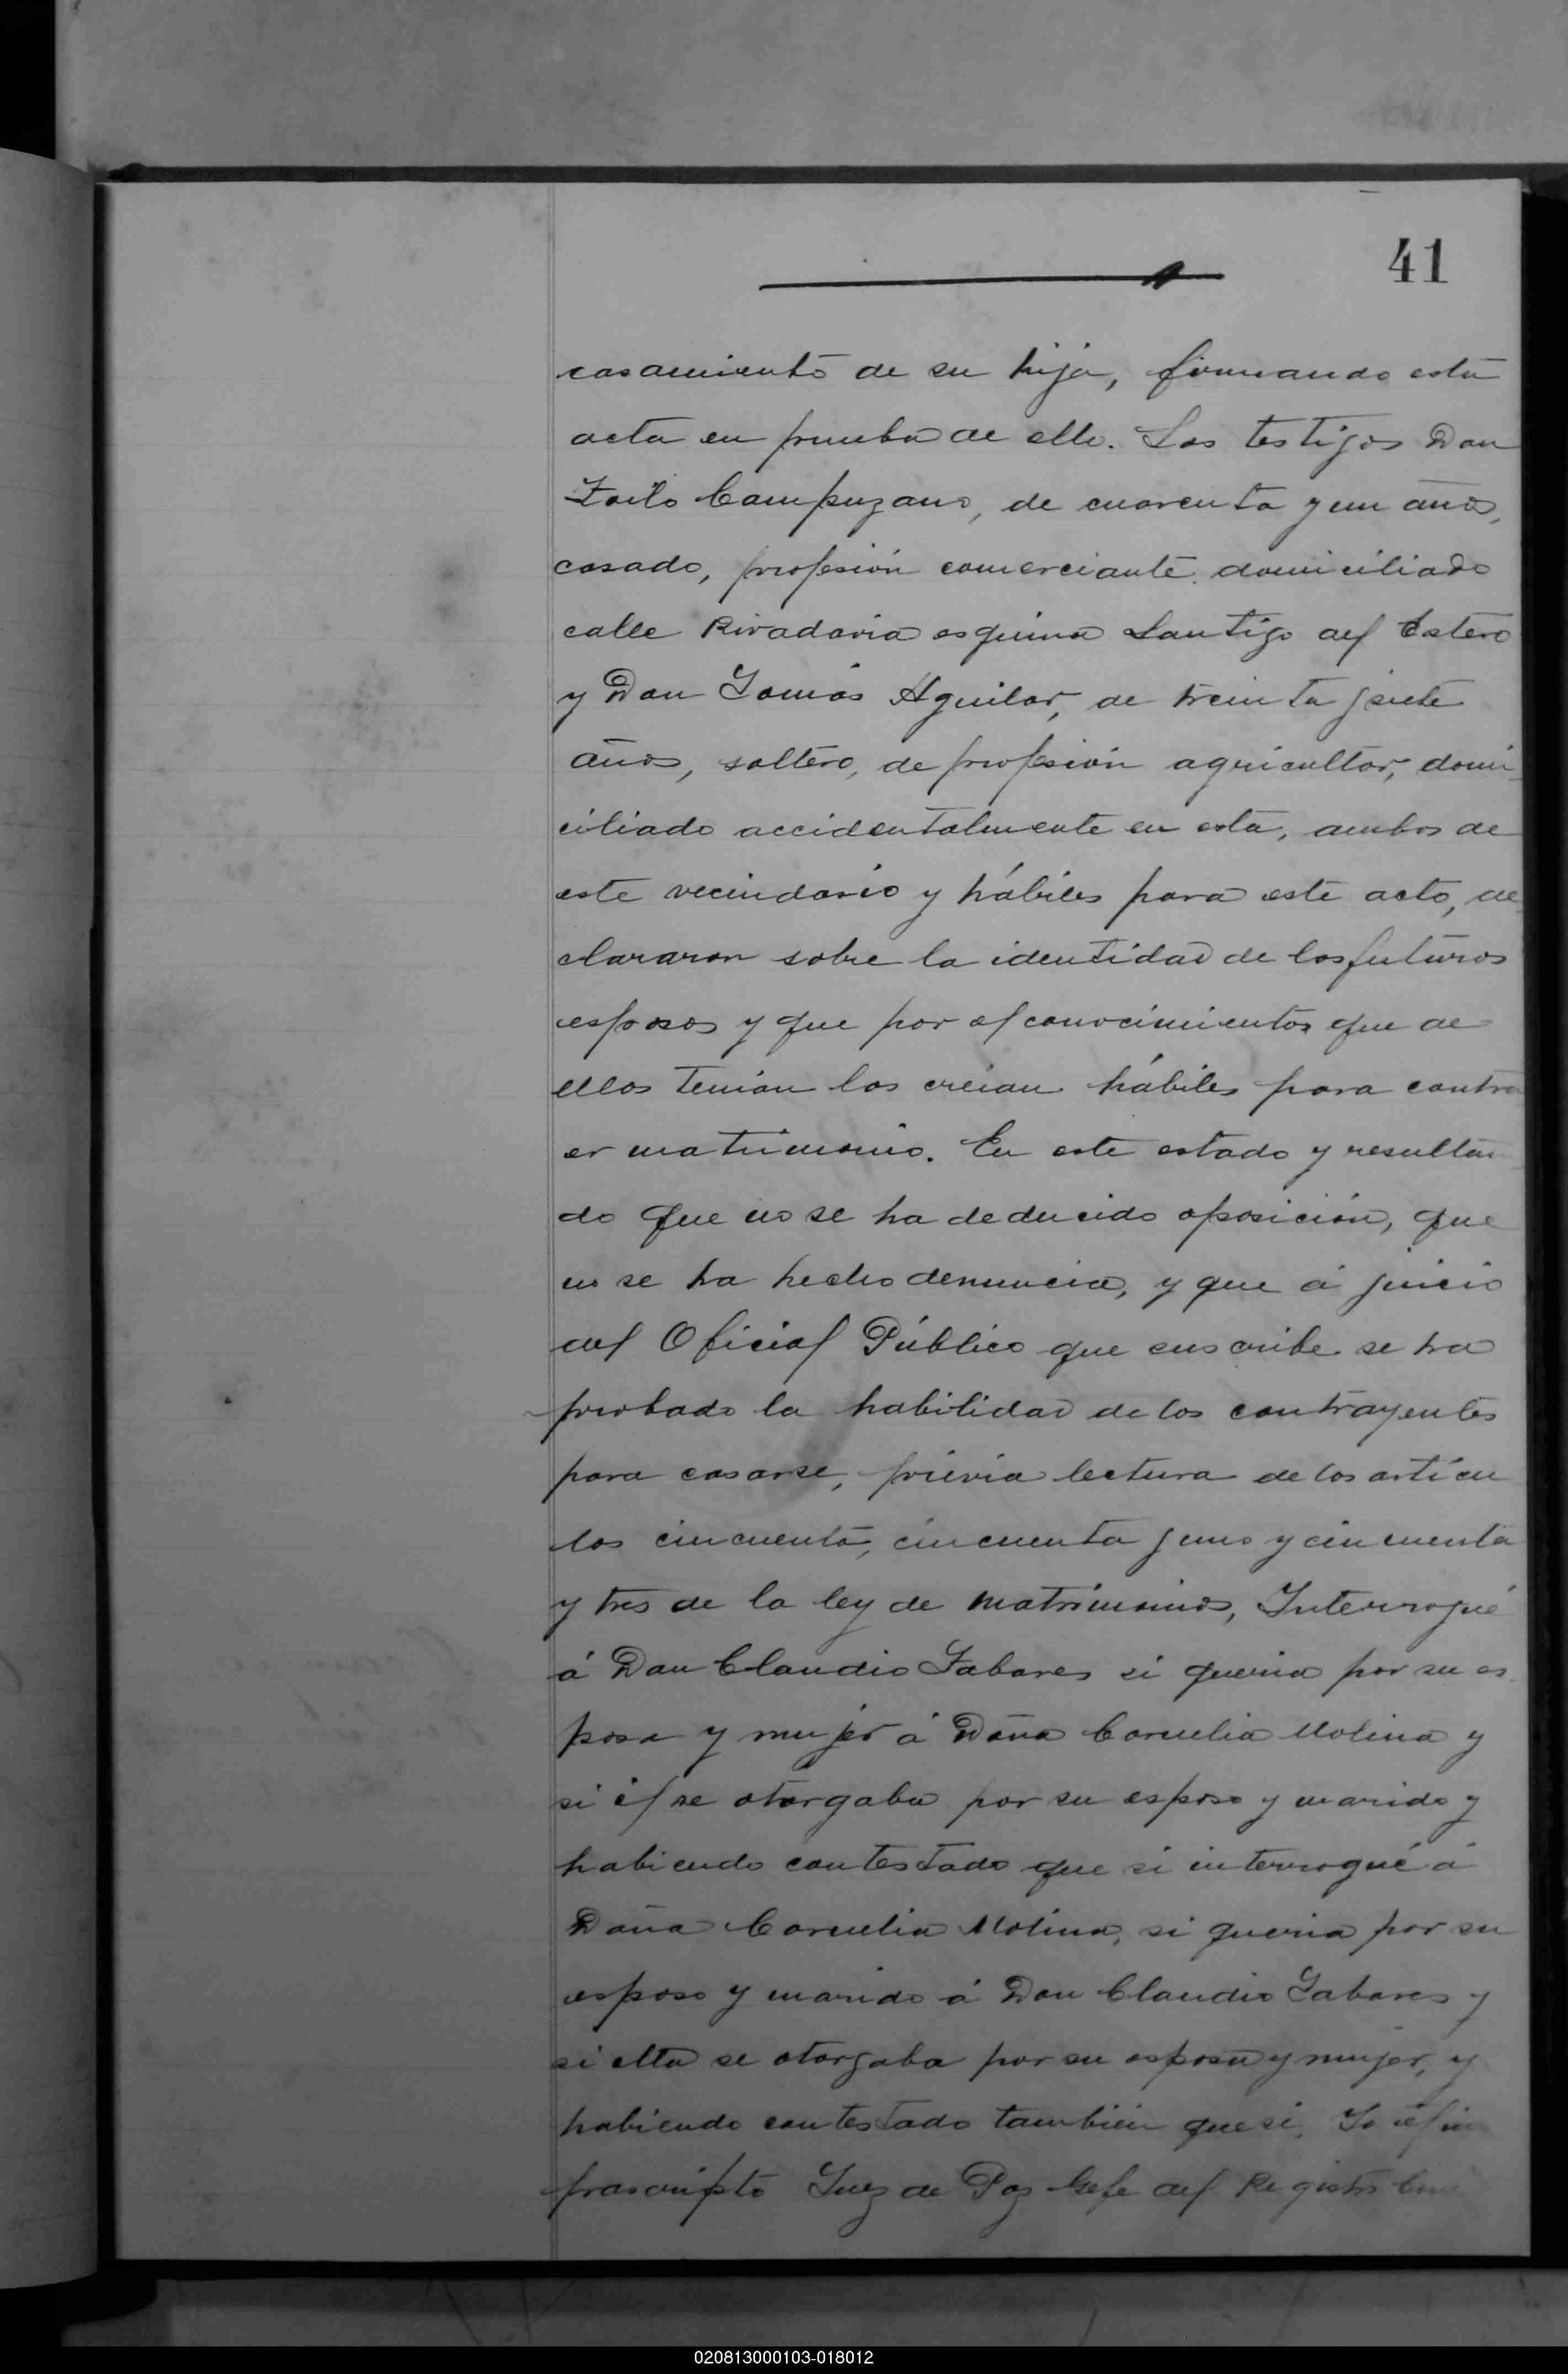 41
casamiento de su hija, firmando esta
acta en prueba de ello. Los testigos Don
Zoilo Campuzano, de cuarenta y un años,
casado, profesión comerciante, domiciliado
calle Rivadavia esquina Santigo del Estero
y Don Tomás Aguilar, de treinta y siete
años, soltero, de profesión agricultor, domi
ciliado accidentalmente en esta, ambos de
este vecindario y hábiles para este acto, de
clararon sobre la identidad de los futuros
esposos y que por el conocimientos que de
ellos tenían los creían hábiles para contra
er matrimonio. En este estado y resultan
do que no se ha deducido oposición, que
no se ha hecho denuncia, y que á juicio
del Oficial Público que suscribe se ha
probado la habilidad de los contrayentes
para casarse, prévia lectura de los artícu
los cincuenta, cincuenta y uno y cincuenta
y tres de la ley de matrimonios, Interrogué
á Don Claudio Tabares si queria por su es
posa y mujer á Doña Cornelia Molina y
si él se otorgaba por su esposo y marido y
habiendo contestado que si interrogué á
Doña Cornelia Molina, si queria por su
esposo y marido á Don Claudio Tabares y
si ella se otorgaba por su esposa y mujer, y
habiendo contestado también que si, Yo el in
frascripto Juez de Paz Gefe del Registro
020813000103-018012